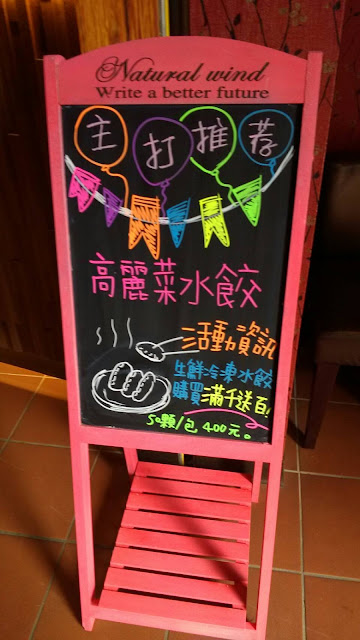 Natural wind
Write a better future
主打推荐
高麗菜水餃
活動資訊
生鮮冷凍水餃
購買滿千送百
50顆/包 400元。